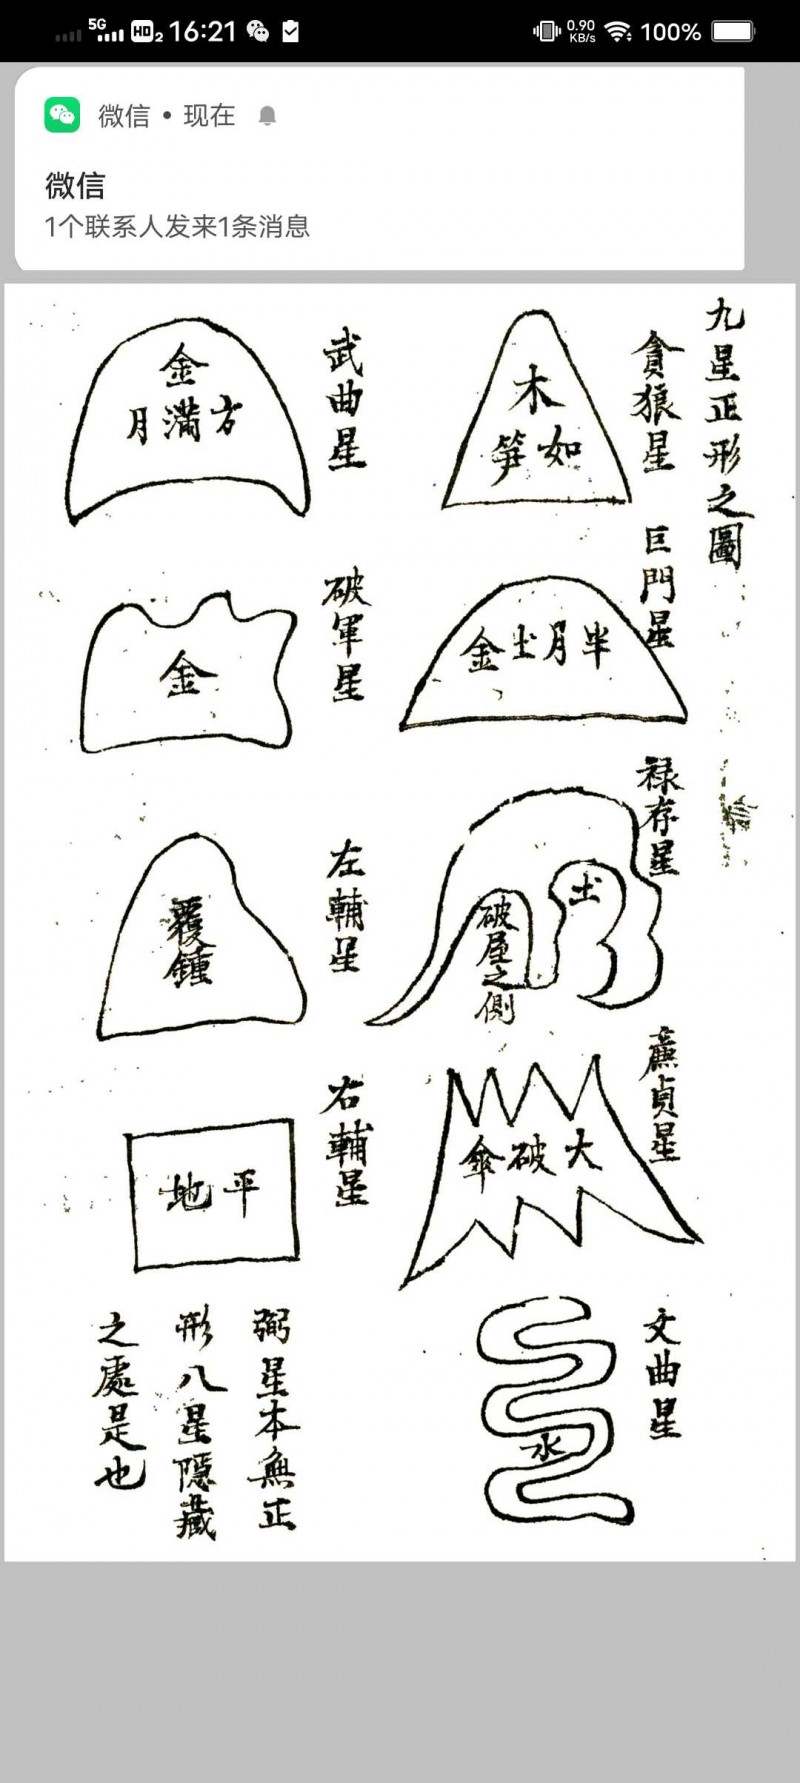 5G HD2 16:21 0.90 KB/s 100%
微信 • 现在
微信
1个联系人发来1条消息
九星正形之圖
貪狼星
木
如笋
巨門星
半月土金
禄存星
土
破屋之側
廉貞星
大破傘
文曲星
水
武曲星
金
方滿月
破軍星
金
左輔星
覆鍾
右輔星
平地
弼星本無正
形八星隱藏
之處是也